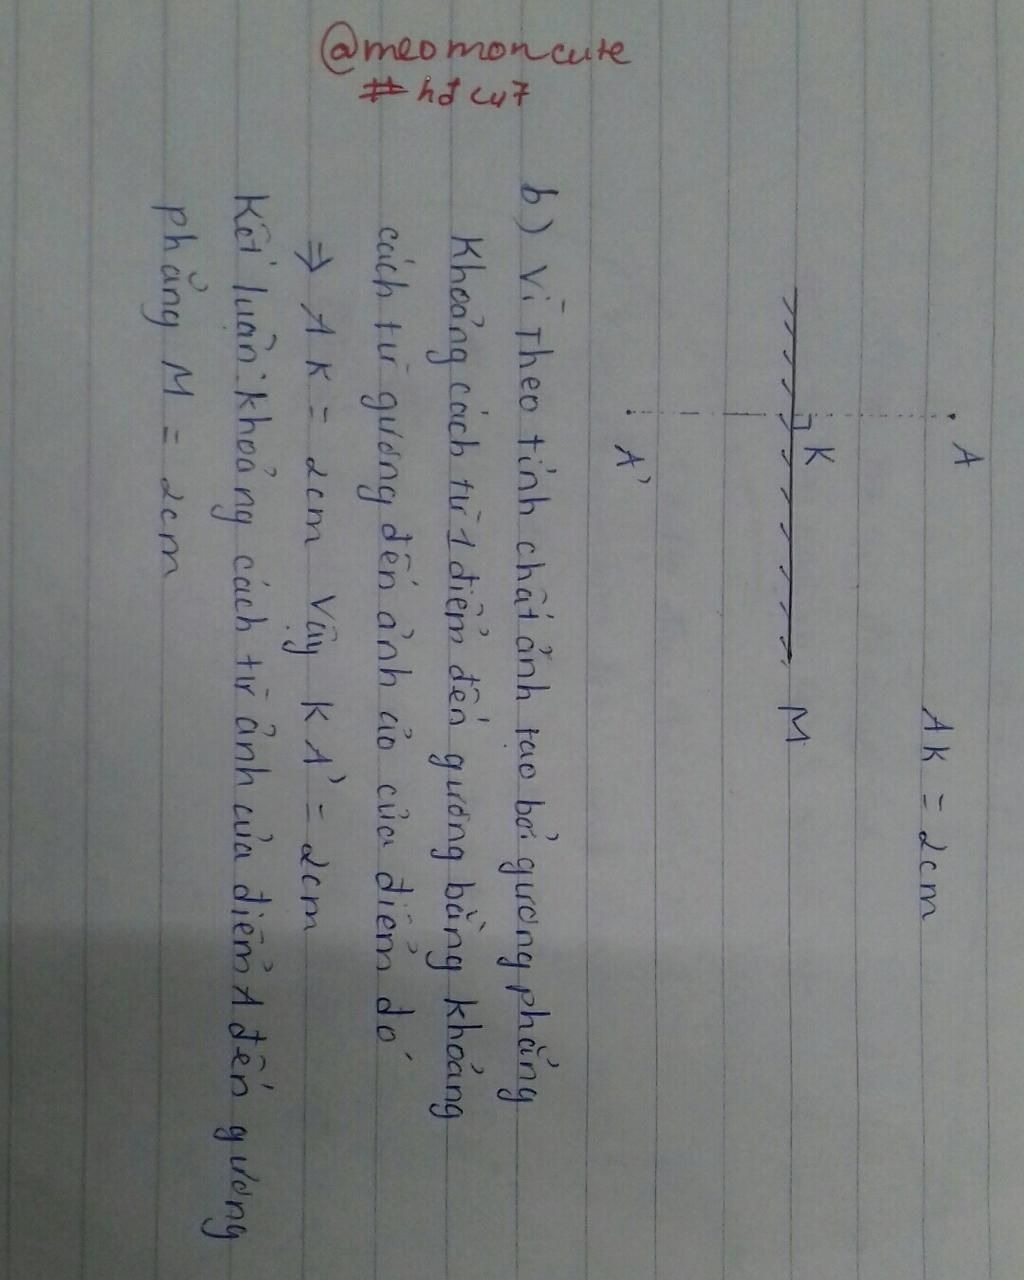 @meomoncute
# hđcu7
A
AK = 2cm
K
M
A'
b) Vì Theo tính chất ảnh tạo bởi gương phẳng
Khoảng cách từ 1 điểm đến gương bằng khoảng
cách từ gương đến ảnh ảo của điểm đó
⇒ AK = 2cm Vậy KA' = 2cm
Kết luận: khoảng cách từ ảnh của điểm A đến gương
phẳng M = 2cm